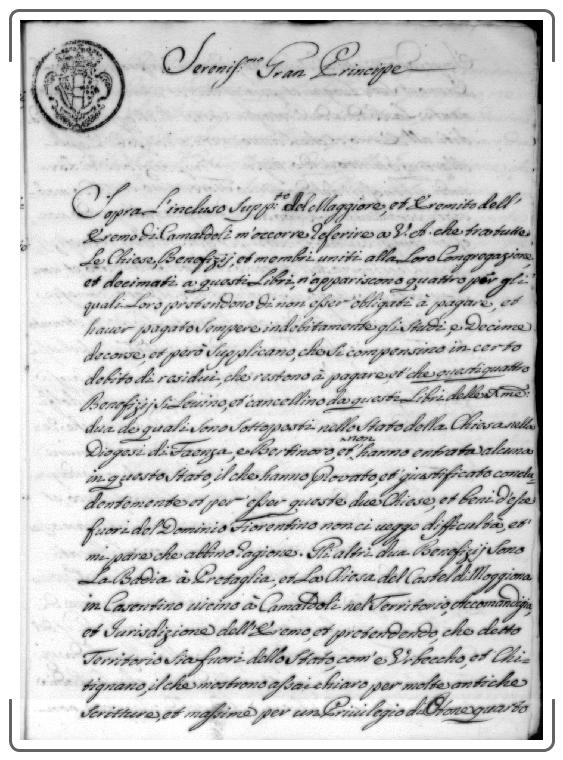 Sereniss.mo Gran Principe
Sopra L'incluso Supp.to del Maggiore, et Eremito dell'
Eremo di Camaldoli m'occorre referire a V. A. che tra tutte
Le Chiese, Benefizij, et membri uniti alla Loro Congregazione,
et decimati a questi Libri, n'appariscono quattro per gli
quali Loro pretendono di non esser obligati à pagare, et
haver pagato Sempre indebitamente gli Staldi e Decime
decorse, et però Supplicano, che Si compensino in certo
debito di residui, che restono à pagare, et che questi quattro
Benefizij Si Levino, et cancellino da questi Libri delle
dua de quali Sono Sottoposti nello Stato della Chiesa nella
Diogesi di Faenza, e Bertinoro, et non hanno entrata alcuna
in questo Stato, il che hanno Provato, et giustificato conclu
dentemente et per esser queste due Chiese, et beni d'esse
fuori del Dominio Fiorentino non ci veggo difficultà, et
mi pare che abbino ragione. Gli altri dua Benefizij Sono
La Badia à Pretaglia, et La Chiesa del Castel di Moggiona
in Casentino vicino à Camaldoli nel Territorio, accomandigia,
et Jurisdizione dell'Eremo, et pretendendo che detto
Territorio Sia fuori dello Stato, com'e Urbeccho, et Chi=
tignano, il che mostrono assai chiaro per molte antiche
Scritture, et massime per un Privilegio di Otone quarto